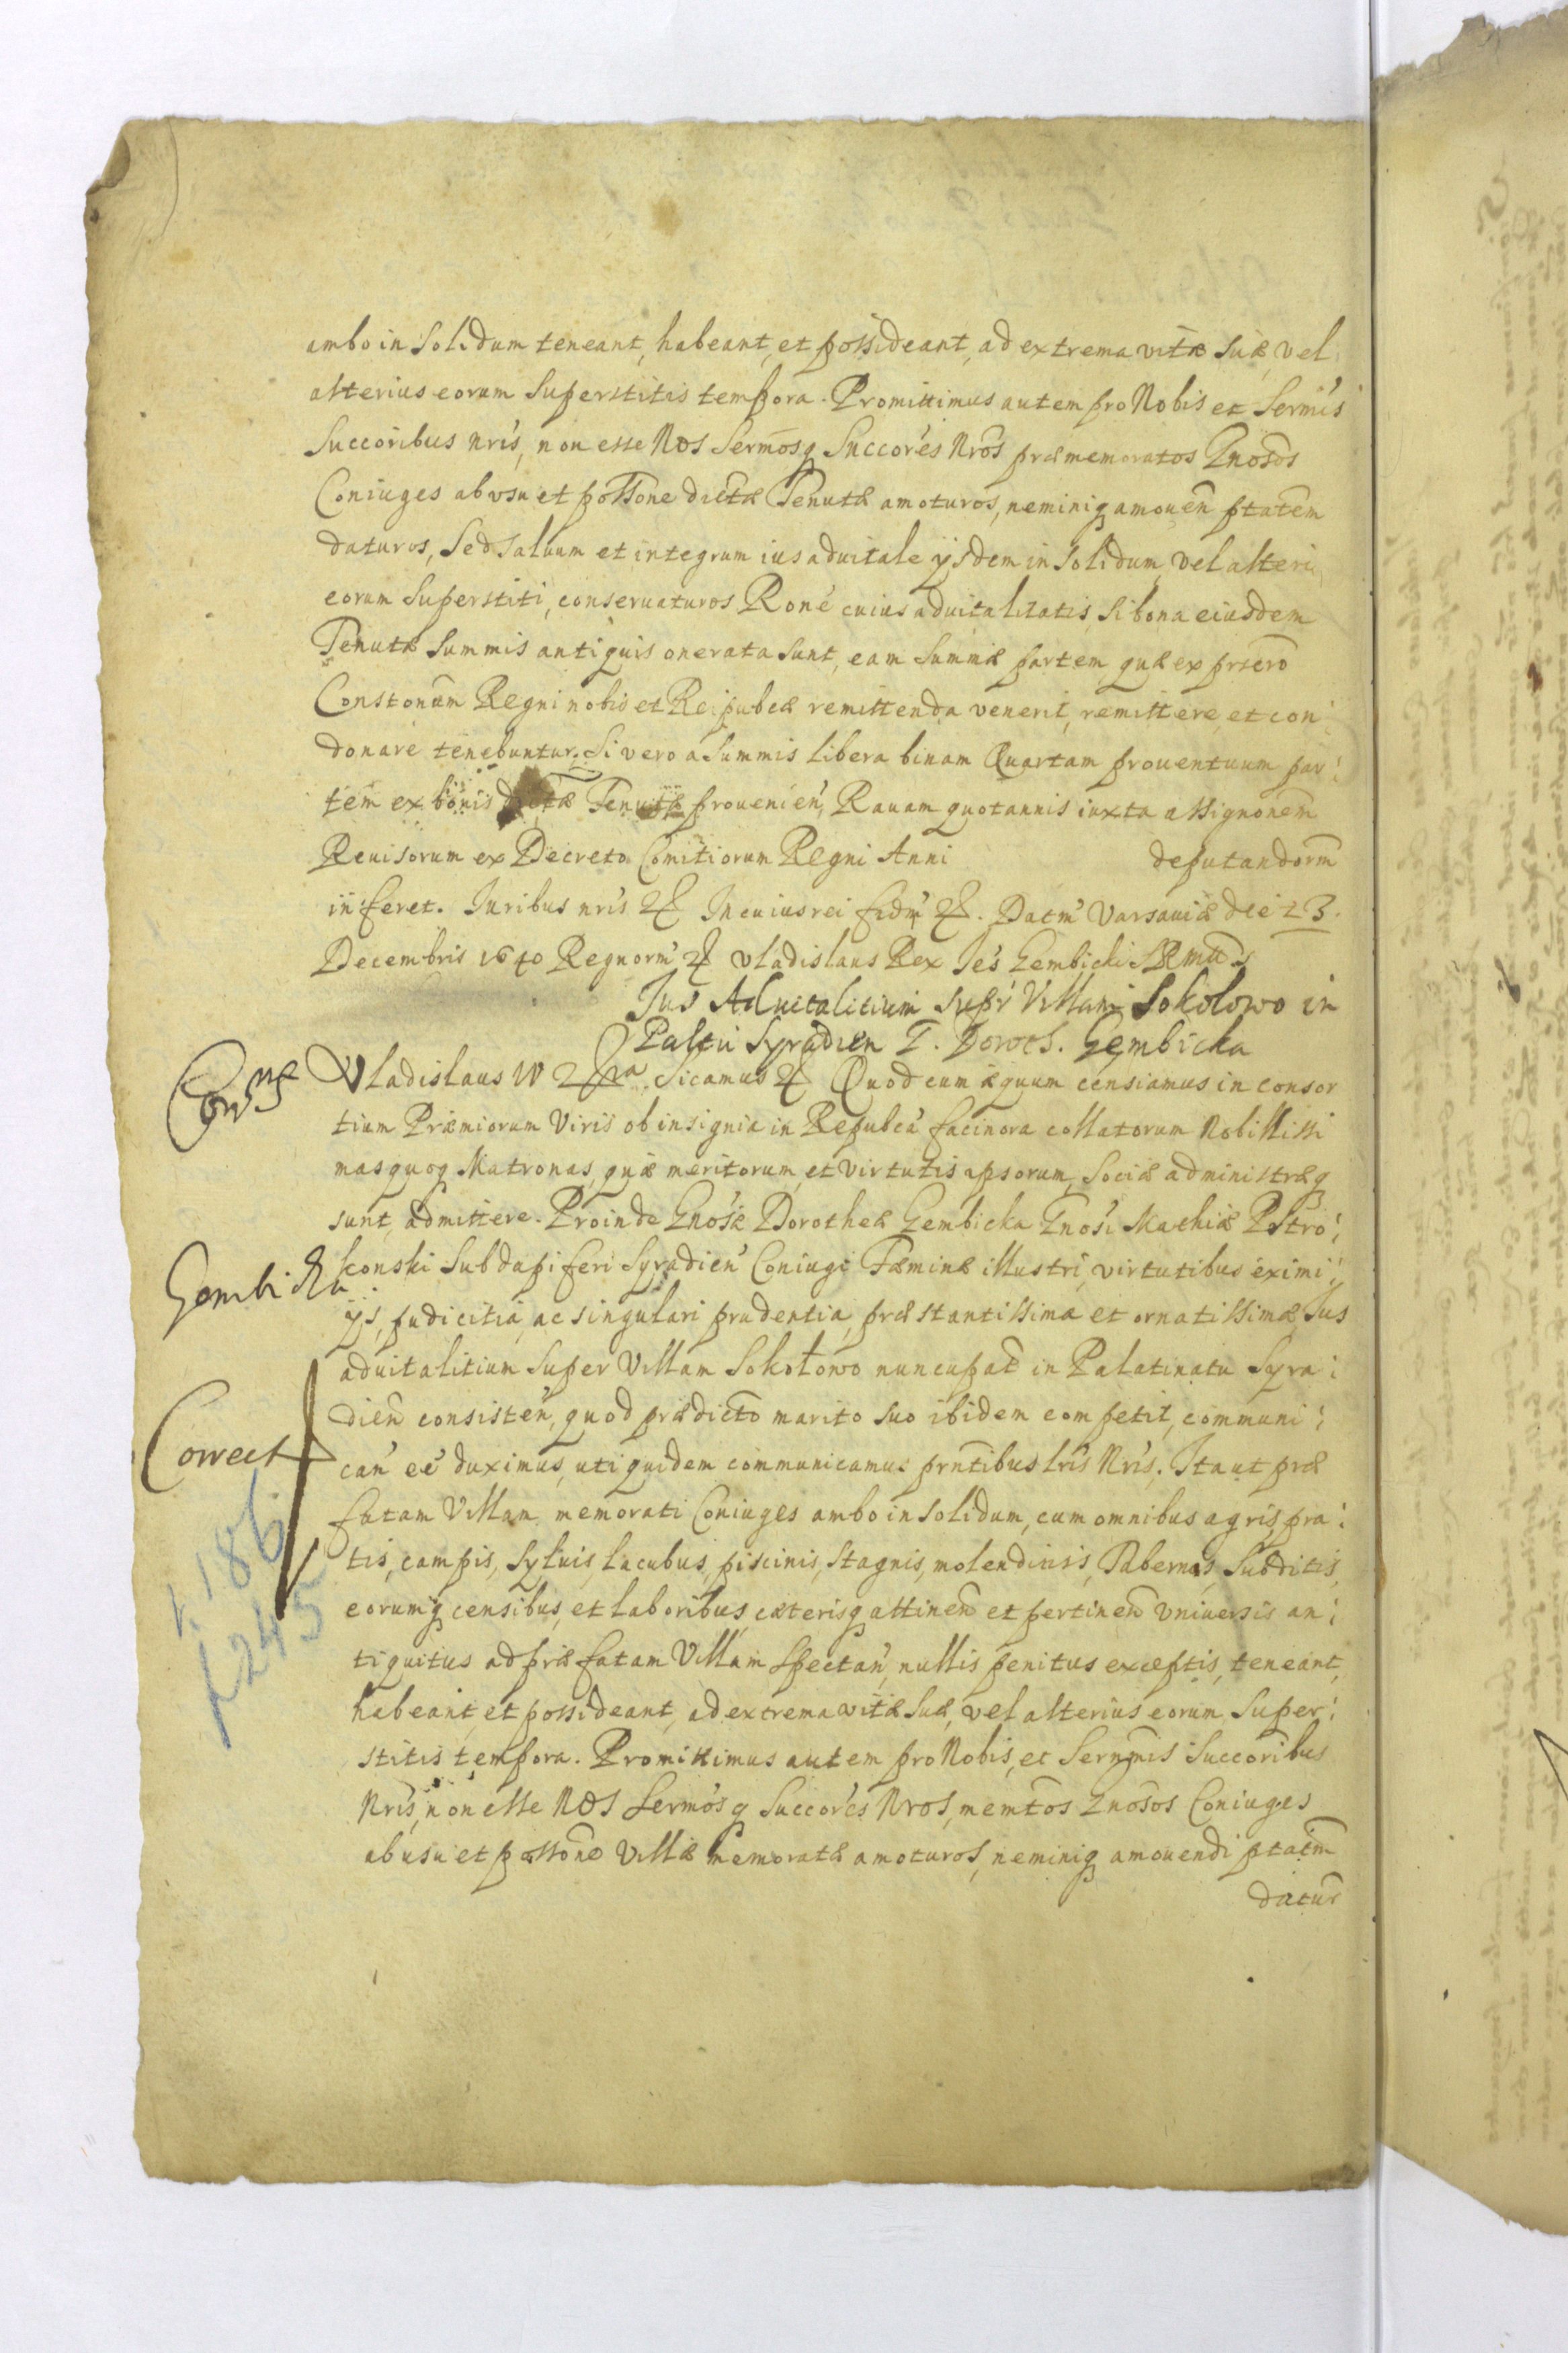 ambo in solidum teneant, habeant, et possideant, ad extrema vitæ suæ, vel
alterius eorum superstitis tempora. Promittimus autem pro Nobis et Sermis
Succoribus nris, non esse Nos Sermosq Succores Nros præmemoratos Gnosos
Coniuges ab vsu et possone dictæ Tenutæ amoturos, neminiq amouen ptatem
daturos, Sed saluum et integrum ius aduitale ijsdem in solidum, vel alteri
eorum superstiti, conseruaturos Rone cuius aduitalitatis, si bona eiusdem
Tenutæ summis antiquis onerata sunt, eam summæ partem, quæ ex prscro
Constonum Regni nobis et Reipubcæ remittenda venerit, remittere, et con:
donare tenebuntur. Si vero a summis libera binam Quartam prouentuum par:
tem ex bonis dictæ Tenutæ prouenien, Rauam quotannis iuxta assignonem
Reuisorum ex Decreto Comitiorum Regni Anni deputandorm
inferet. Iuribus nris &c In cuius rei fidm &c. Datm Varsauiæ die 23.
Decembris 1640 Regnorm &c Vladislaus Rex Jes Gembicki
Jus Aduitalitium supr Villam Sokolowo in
Paltu Syradien G. Doroth. Gembicka
Vladislaus IV &c Sicamus &c Quod cum æquum censiamus in consor
tium Præmiorum Viris ob insignia in Repubca facinora collatorum Nobilissi
mas quoq Matronas, quæ meritorum, et virtutis ipsorum, sociæ administræq
sunt, admittere. Proinde Gnosæ Dorotheæ Gembicka Gnosi Mathiæ Pstro:
konski Subdapiferi Syradien Coniugi Fæminæ illustri, virtutibus eximi:
Gembicka
ijs, pudicitia, ac singulari prudentia, præstantissima et ornatissimæ, Jus
aduitalitium super Villam Sokołowo nuncupat in Palatinatu Syra:
dien consisten, quod prædicto marito suo ibidem competit, communi:
Correct
can ee duximus, uti quidem communicamus prntibus lris Nris. Ita ut præ
fatam Villam memorati Coniuges ambo in solidum, cum omnibus agris, pra:
186
tis, campis, syluis, lacubus, piscinis, stagnis, molendinis, Tabernis, Subditis,
eorumq censibus, et laboribus, cæterisq attinen et pertinen vniuersis an:
245
tiquitus ad præfatam Villam spectan, nullis penitus exceptis, teneant,
habeant, et possideant, ad extrema vitæ suæ, vel alterius eorum, super:
stitis tempora. Promittimus autem pro Nobis, et Sernmis Succoribus
Nris, non esse Nos Sermosq Succores Nros, memtos Gnosos Coniuges
ab usu et possone Villæ memoratæ amoturos, neminiq amouendi ptatm
datur